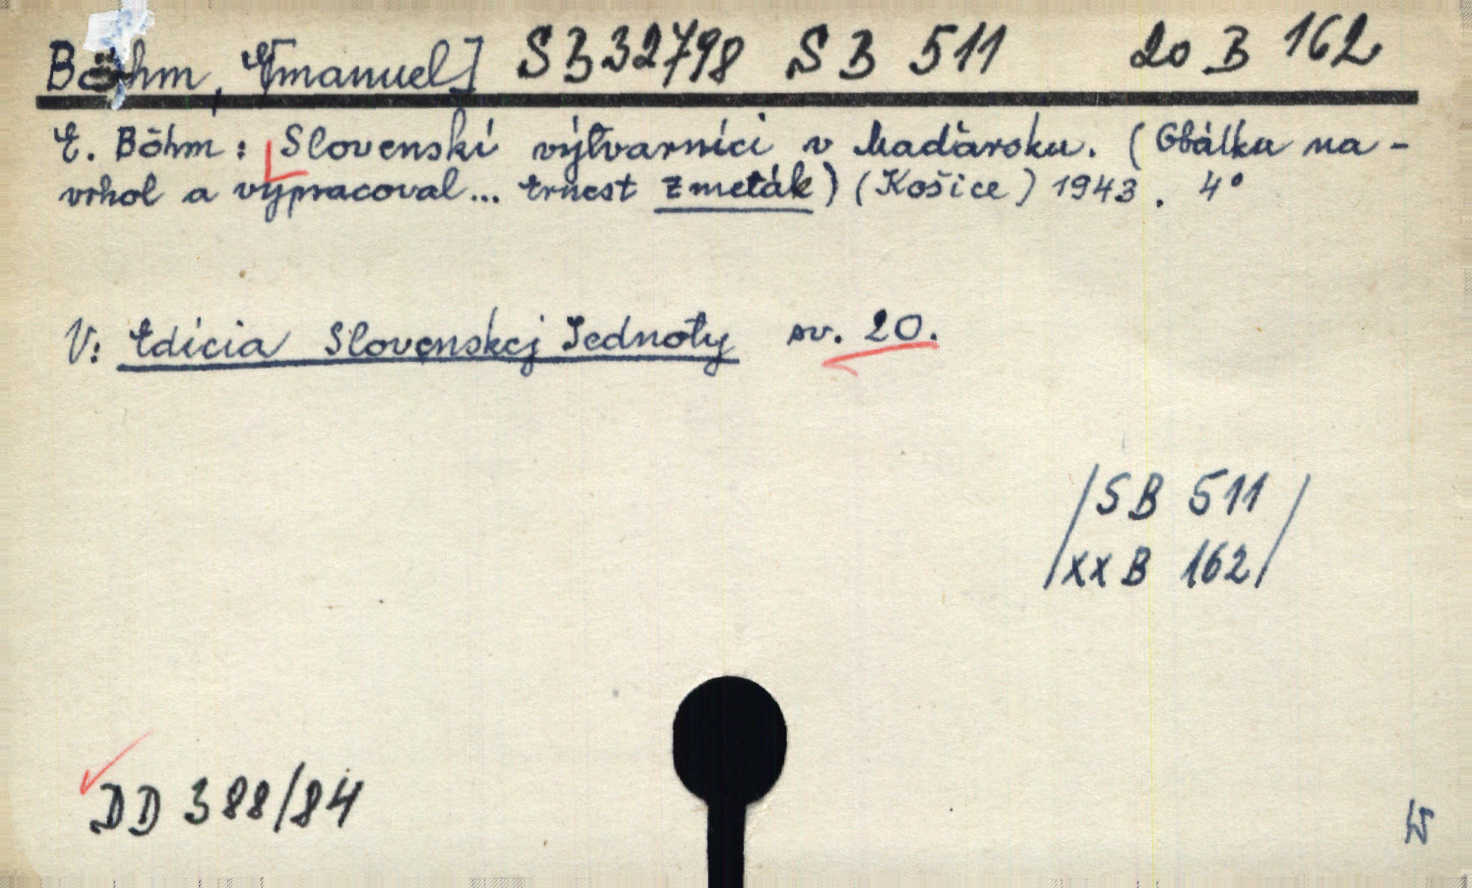 Böhm, E[manuel] SB32798 SB 511 20 B 162
E. Böhm: Slovenskí výtvarníci v Maďarsku. (Obálku na-
vrhol a vypracoval... Ernest Zmeták) (Košice) 1943. 4°
V: Edícia Slovenskej Jednoty sv. 20.
/SB 511/
/xx B 162/
DD 388/84